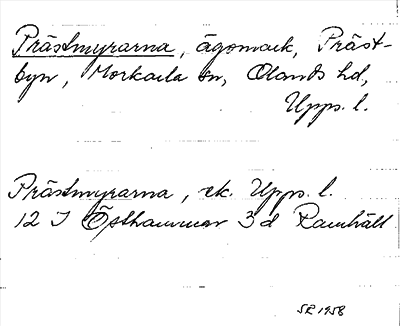 Prästmyrarna, ägomark, Präst-
byn, Morkarla sn, Olands hd,
Upps. l.
Prästmyrarna, ek. Upps. l.
12 I Östhammar 3 d Ramhäll
SR 1958